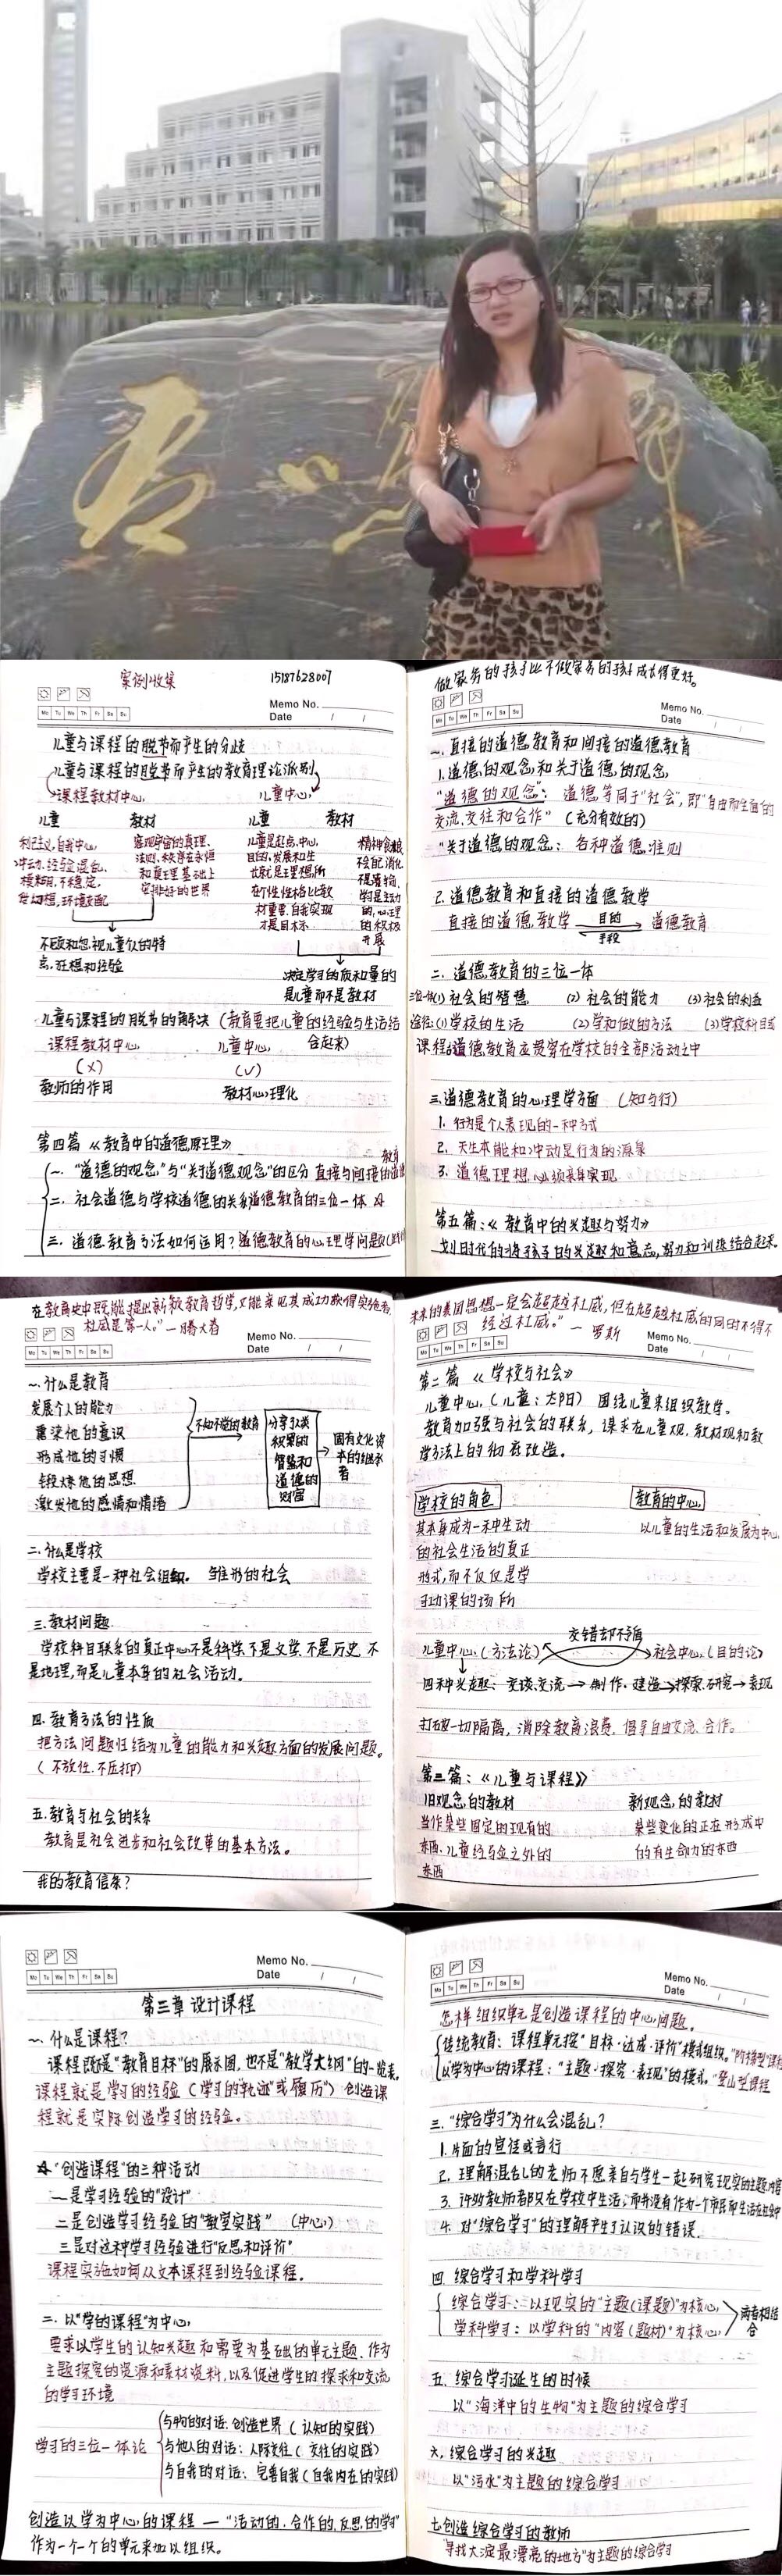 案例收集 15187628007
Memo No.
Date / /
Mo Tu We Th Fr Sa Su
儿童与课程的脱节而产生的分歧
儿童与课程的脱节而产生的教育理论派别
课程教材中心 儿童中心
儿童 教材 儿童 教材
利己主义,自我中心,
冲动,经验混乱,
模糊,不稳定,
客观宇宙的真理、
法则、秩序在永恒
和真理基础上
安排好的世界
儿童是起点,中心,
目的,发展和生
长就是理想所
在个性性格比教
材重要,自我实现
才是目标
不顾和忽视儿童个人的特
点,狂想和经验
决定学习的质和量的
是儿童而不是教材
儿童与课程的脱节的解决(教育要把儿童的经验与生活结
合起来)
课程教材中心, 儿童中心,
(×) (√)
教师的作用 教材心理化
第四篇《教育中的道德原理》
一、“道德的观念”与“关于道德观念”的区分 直接与间接的道德
教育
二、社会道德与学校道德的关系 道德教育的三位一体
三、道德教育方法如何运用?道德教育的心理学问题
做家务的孩子比不做家务的孩子成长得更好。
Memo No.
Date / /
Mo Tu We Th Fr Sa Su
一、直接的道德教育和间接的道德教育
1.道德的观念和关于道德的观念,
“道德的观念”:道德等同于“社会”,即“自由而全面的
交流、交往和合作”(充分有效的)
“关于道德的观念:各种道德准则
2.道德教育和直接的道德教学
直接的道德教学 目的 道德教育
手段
二、道德教育的三位一体
三位一体(1)社会的智慧 (2)社会的能力 (3)社会的利益
途径:(1)学校的生活 (2)学和做的方法 (3)学校科目或
课程。道德教育应贯穿在学校的全部活动之中
三、道德教育的心理学方面 (知与行)
1. 行为是个人表现的一种方式
2. 天生本能和冲动是行为的源泉
3. 道德理想必须亲身实现
第五篇:《教育中的兴趣与努力》
划时代的将孩子的兴趣和意志,努力和训练结合起来。
在教育史中既能提出新教育哲学,又能亲见其成功获得实施者,
杜威是第一人。”—滕大春
Memo No.
Date / /
Mo Tu We Th Fr Sa Su
一、什么是教育
发展个人的能力
熏染他的意识
形成他的习惯
锻炼他的思想
激发他的感情和情绪
不知不觉的教育
分享人类
积累的
智慧和
道德的
财富
固有文化资
本的继承
者
二、什么是学校
学校主要是一种社会组织。 雏形的社会
三、教材问题
学校科目联系的真正中心不是科学,不是文学,不是历史,不
是地理,而是儿童本身的社会活动。
四、教育方法的性质
把方法问题归结为儿童的能力和兴趣方面的发展问题。
(不放任,不压抑)
五、教育与社会的关系
教育是社会进步和社会改革的基本方法。
我的教育信条?
未来的美国思想一定会超越杜威,但在超越杜威的同时不得不
经过杜威。”—罗斯
Memo No.
Date / /
Mo Tu We Th Fr Sa Su
第二篇《学校与社会》
儿童中心,(儿童:太阳) 围绕儿童来组织教学。
教育加强与社会的联系,谋求在儿童观,教材观和教
学方法上的彻底改造。
学校的角色 教育的中心
其本身成为一种生动 以儿童的生活和发展为中心
的社会生活的真正
形式,而不仅仅是学
习功课的场所
交错却不矛盾
儿童中心,(方法论) 社会中心,(目的论)
四种兴趣:交谈、交流→制作、建造→探索、研究→表现
打破一切隔离,消除教育浪费,倡导自由交流、合作。
第三篇:《儿童与课程》
旧观念的教材 新观念的教材
当作某些固定的现有的 某些变化的正在形成中
东西,儿童经验之外的 的有生命力的东西
东西
Memo No.
Date / /
Mo Tu We Th Fr Sa Su
第三章 设计课程
一、什么是课程?
课程既不是“教育目标”的展示图,也不是“教学大纲”的一览表。
课程就是学习的经验(学习的轨迹”或履历”)创造课
程就是实际创造学习的经验。
“创造课程”的三种活动
一是学习经验的“设计”
二是创造学习经验的“教室实践”(中心)
三是对这种学习经验进行“反思和评价”
课程实施如何从文本课程到经验课程。
二、以“学的课程”为中心,
要求以学生的认知兴趣和需要为基础的单元主题,作为
主题探究的资源和素材资料,以及促进学生的探求和交流
的学习环境
学习的三位一体论
与物的对话:创造世界(认知的实践)
与他人的对话:人际交往(交往的实践)
与自我的对话:完善自我(自我内在的实践)
创造以学为中心的课程—“活动的、合作的、反思的学”
作为一个一个的单元来加以组织。
Memo No.
Date / /
Mo Tu We Th Fr Sa Su
怎样组织单元是创造课程的中心问题。
传统教育:课程单元按“目标·达成·评价”模式组织。“阶梯型”课程
以学为中心的课程:“主题·探究·表现”的模式。“登山型”课程
三、“综合学习”为什么会混乱?
1.片面的宣传或言行
2. 理解混乱的老师不愿亲自与学生一起研究现实的主题内容
3. 许多教师都只在学校中生活,而并没有作为一个市民而生活在社会中
4. 对“综合学习”的理解产生了认识的错误。
四 综合学习和学科学习
综合学习:以现实的“主题(课题)”为核心,
学科学习:以学科的“内容(题材)”为核心,
两者相结
合
五、综合学习诞生的时候
以“海洋中的生物”为主题的综合学习
六、综合学习的兴趣
以“污水”为主题的综合学习
七、创造综合学习的教师
“寻找大淀最漂亮的地方”为主题的综合学习